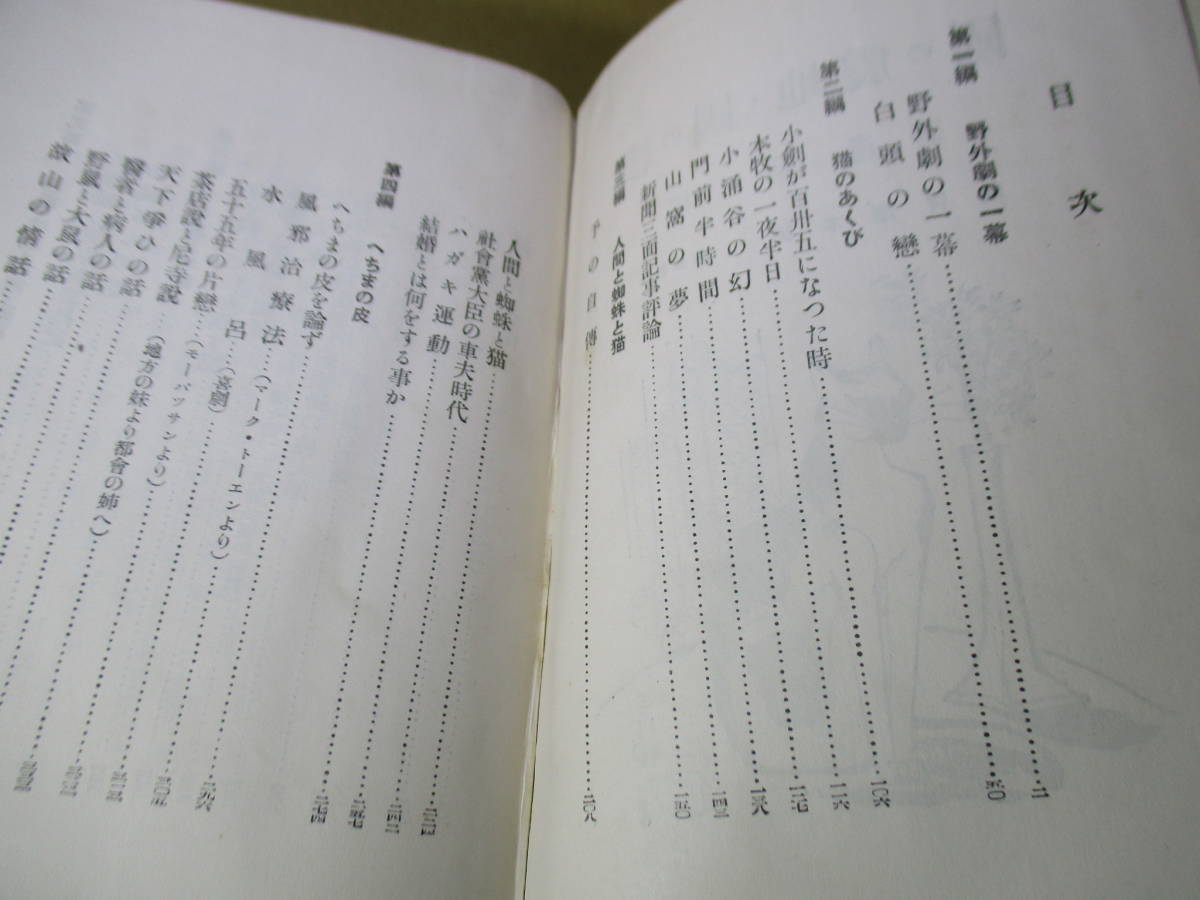 目次
第一編 野外劇の一幕
野外劇の一幕
白頭の戀
第二編 猫のあくび
小劍が百卅五になつた時
本牧の一夜半日
小涌谷の幻
門前半時間
山窩の夢
新聞三面記事評論
第三編 人間と蜘蛛と猫
予の自傳
人間と蜘蛛と猫
社會黨大臣の車夫時代
ハガキ運動
結婚とは何をする事か
第四編 へちまの皮
へちまの皮を論ず
風邪治療法(マーク・トーエンより)
水風呂(喜劇)
五十五年の片戀(モーパッサンより)
茶店説と尼寺説(地方の妹より都會の姉へ)
天下爭ひの話
醫者と病人の話
野風と大風の話
故山の情話